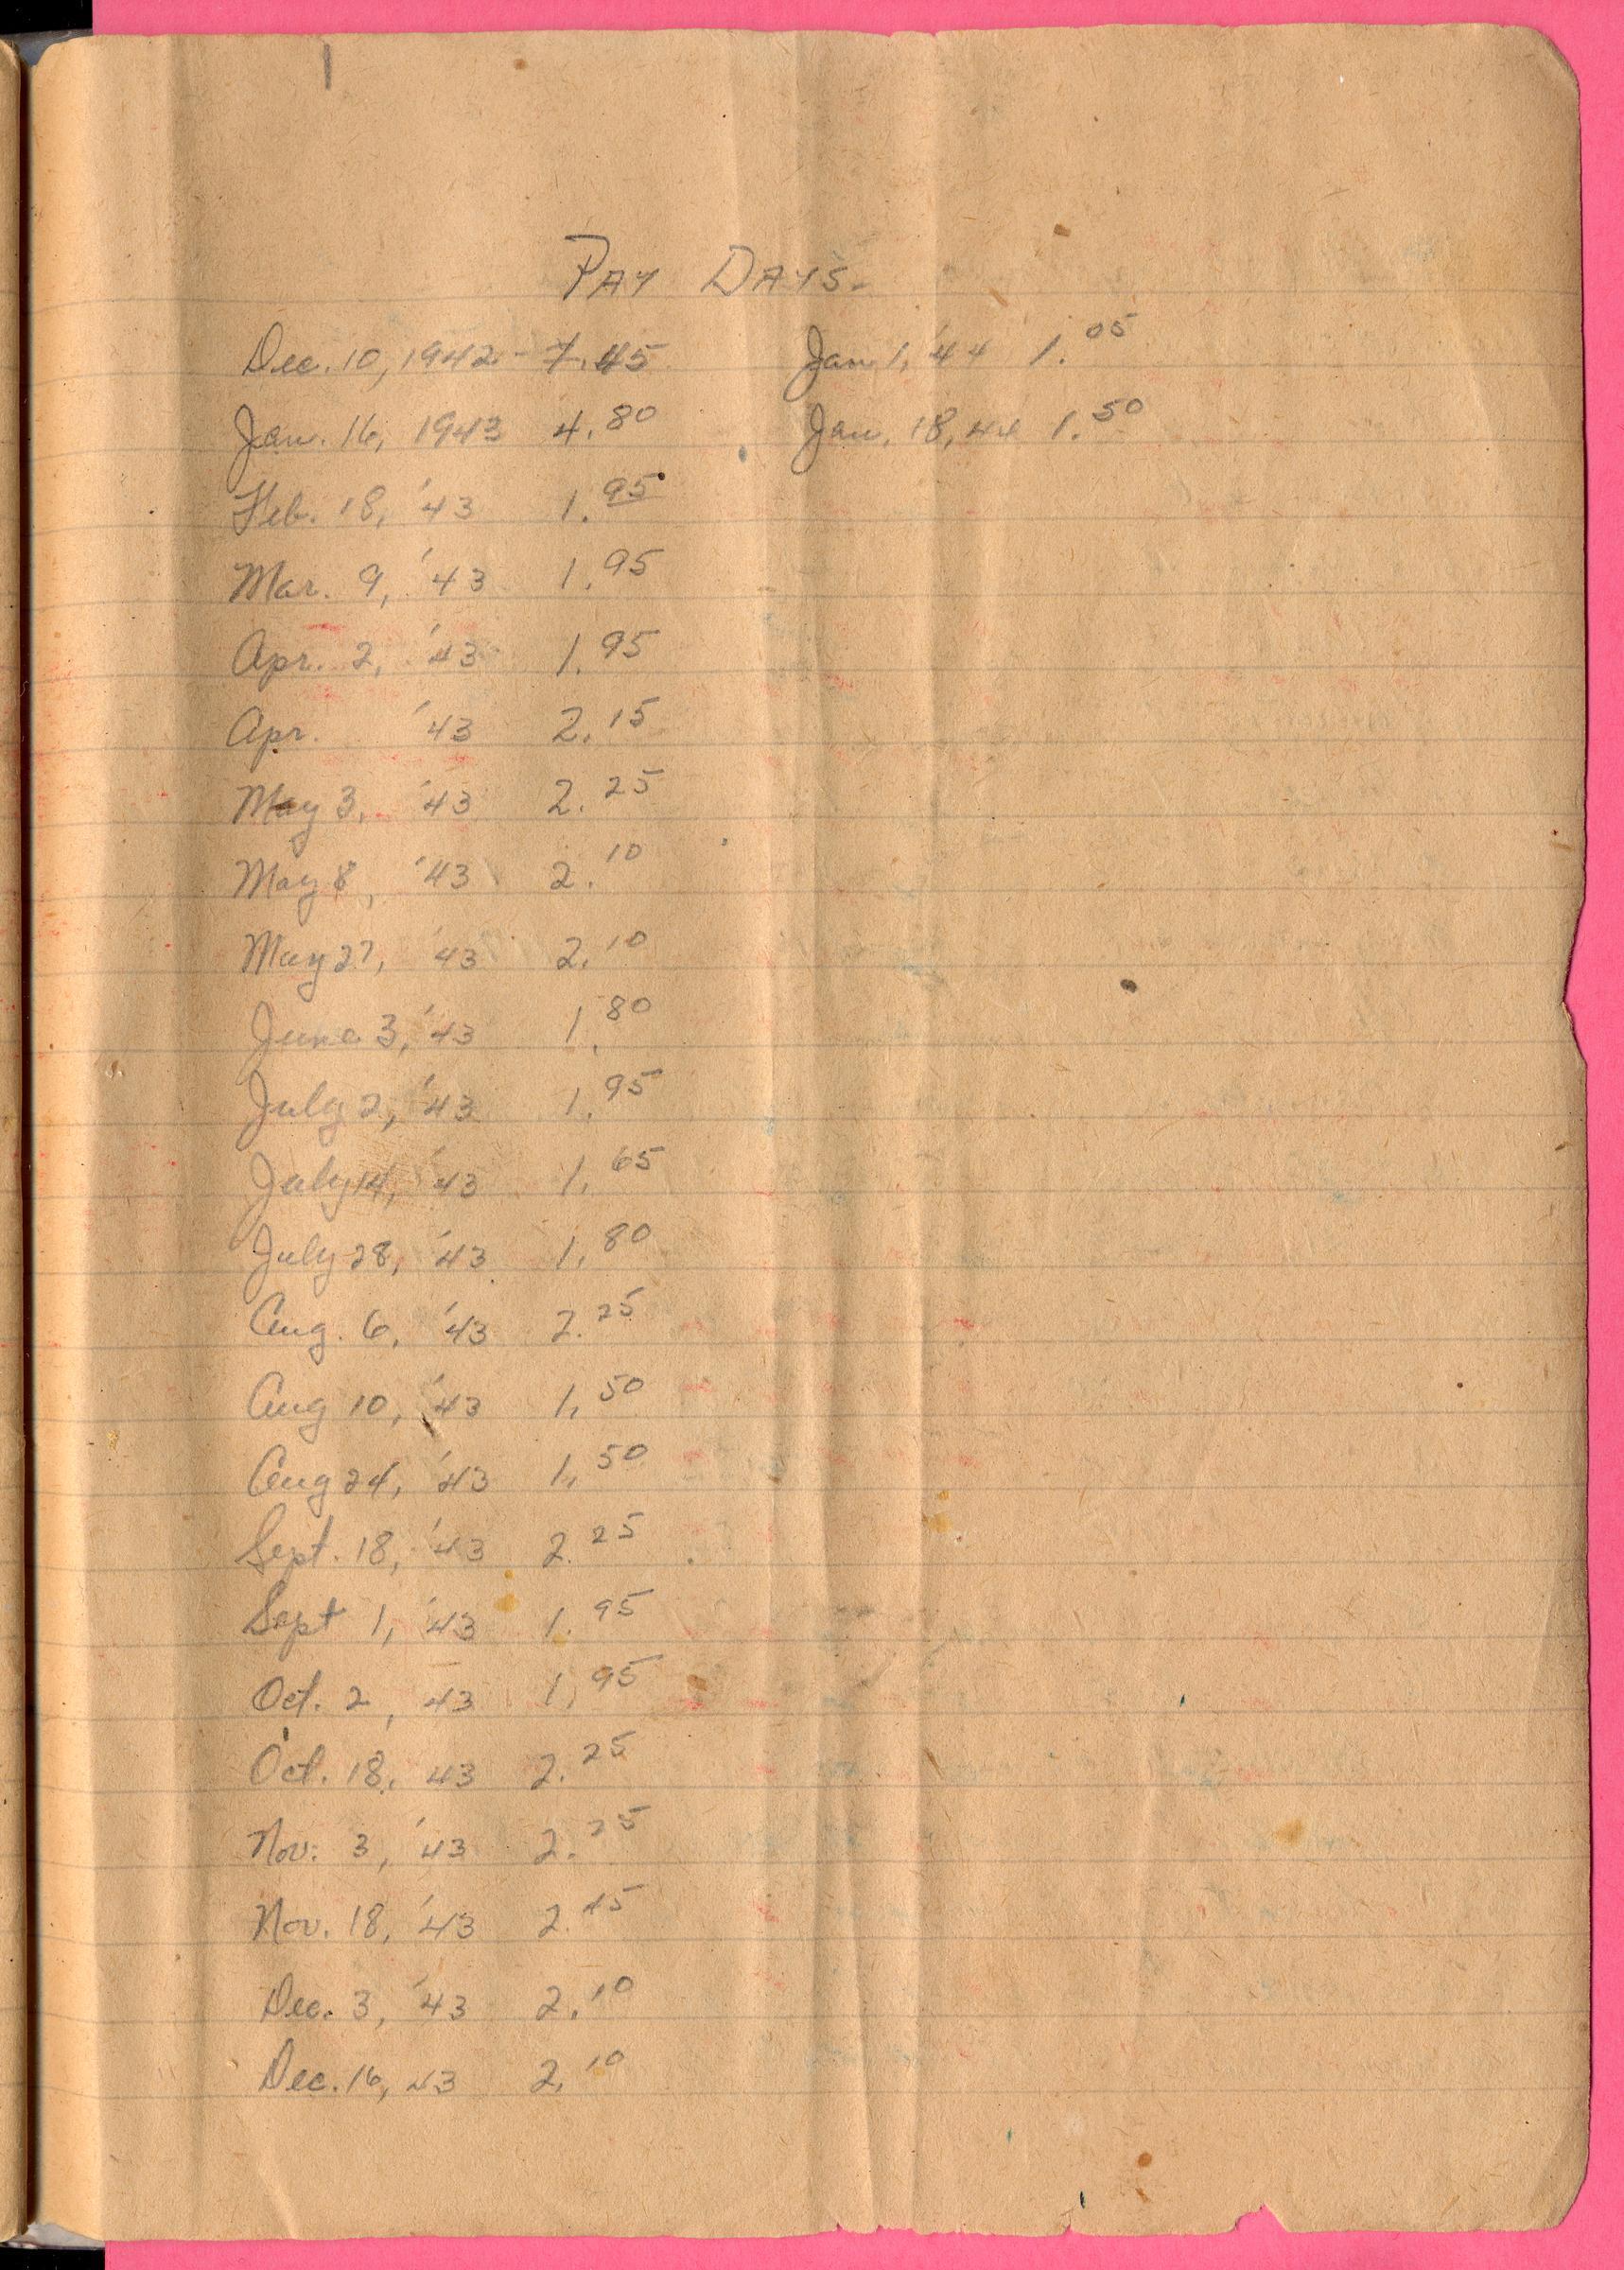 PAY DAYS-
Dec. 10, 1942 - 7.45
Jan. 16, 1943 4.80
Feb. 18, '43 1.95
Mar. 9, '43 1.95
Apr. 2, '43 1.95
Apr. '43 2.15
May 3, '43 2.25
May 8, '43 2.10
May 27, '43 2.10
June 3, '43 1.80
July 2, '43 1.95
July 14, '43 1.65
July 28, '43 1.80
Aug. 6, '43 2.25
Aug 10, '43 1.50
Aug 24, '43 1.50
Sept. 18, '43 2.25
Sept 1, '43 1.95
Oct. 2, 43 1.95
Oct. 18, 43 2.25
Nov. 3, '43 2.25
Nov. 18, '43
Dec. 3, '43 2.10
Dec. 16, 43 2.10
Jan 1, '44 1.05
Jan. 18, 44 1.50